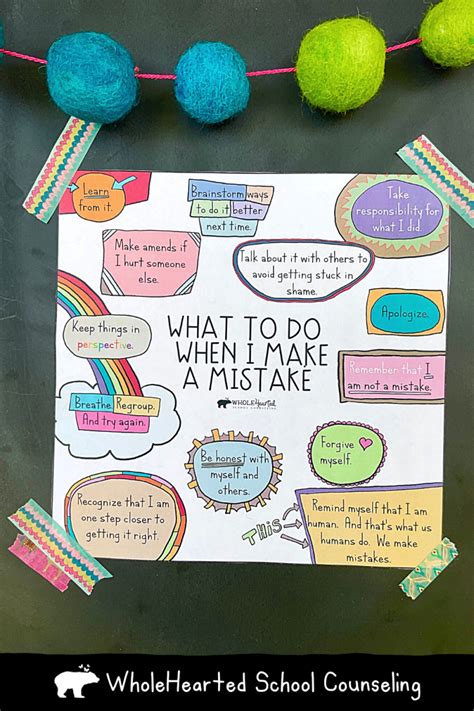 Learn
from it.
Brainstorm ways
to do it better
next time.
Take
responsibility for
what I did.
Make amends if
I hurt someone
else.
Talk about it with others to
avoid getting stuck in
shame.
Apologize.
Keep things in
perspective.
WHAT TO DO
WHEN I MAKE
A MISTAKE
WHOLEHearted
SCHOOL COUNSELING
Remember that I
am not a mistake.
Breathe. Regroup.
And try again.
Be honest with
myself and
others.
Forgive
myself.
Recognize that I am
one step closer to
getting it right.
This
Remind myself that I am
human. And that's what us
humans do. We make
mistakes.
WholeHearted School Counseling